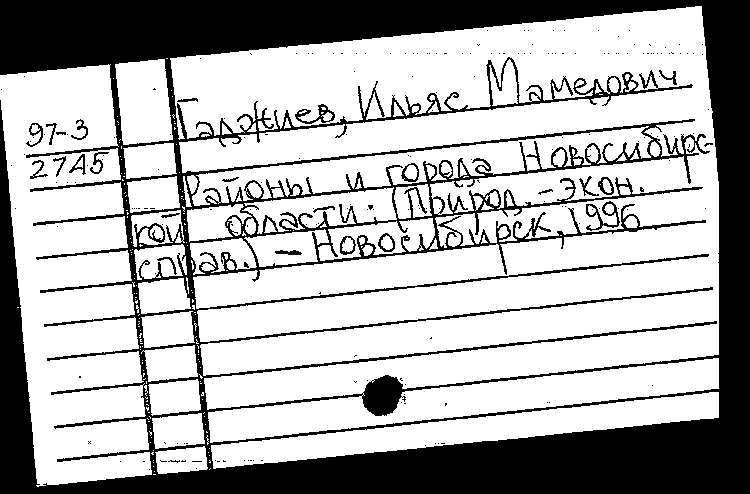 97-3
2745
Гаджиев, Ильяс Мамедович
Районы и города Новосибирс-
кой области: (Природ.-экон.
справ.) - Новосибирск, 1996